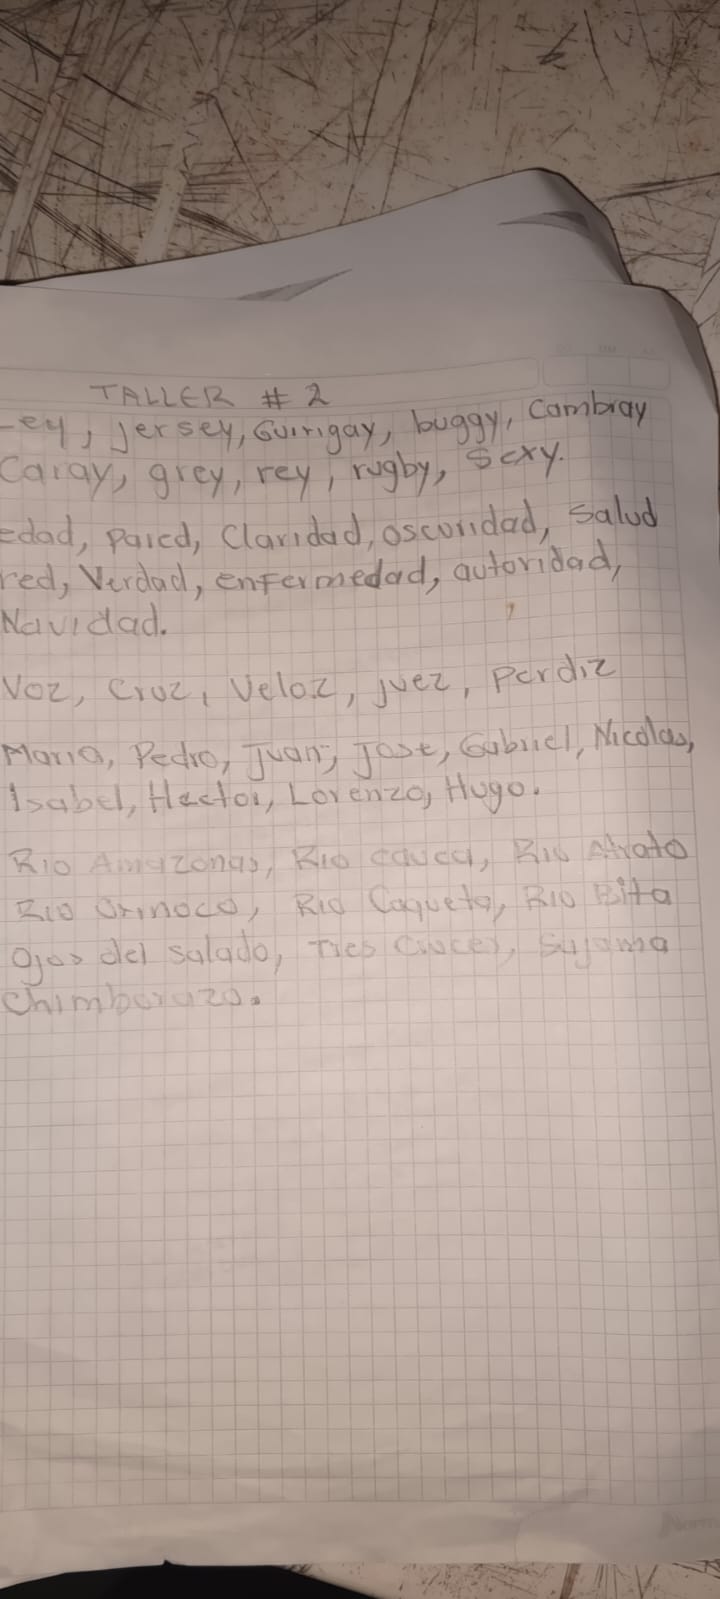 TALLER # 2
Ley, jersey, Guirigay, buggy, Cambray
Caray, grey, rey, rugby, Sexy.
edad, pared, Claridad, oscuridad, Salud
red, Verdad, enfermedad, autoridad,
Navidad.
Voz, Cruz, Veloz, juez, Perdiz
Maria, Pedro, Juan, Jose, Gabriel, Nicolas,
Isabel, Hector, Lorenzo, Hugo.
Rio Amazonas, Rio Cauca, Rio Atrato
Rio Orinoco, Rio Caqueta, Rio Bita
Ojos del Salado, Tres Cruces, Sajama
Chimborazo.